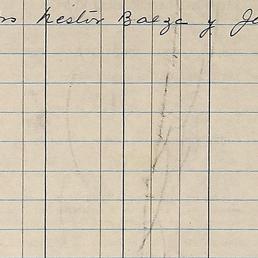 Nestor Baeza y